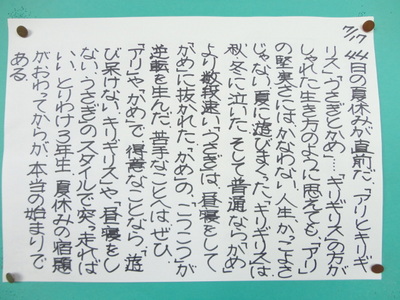 7/17
44日の夏休みが直前だ。「アリとキリギ
リス」「うさぎとかめ」…「キリギリス」の方が
しゃれた生き方のように思えても、「アリ」
の堅実さにはかなわない。人生、かっこよさ
じゃない。夏に遊びまくった、「キリギリス」は
秋、冬に泣いた。そして普通なら「かめ」
より数段速い「うさぎ」は、昼寝をして
「かめ」に抜かれた。「かめ」の、「こつこつ」が
逆転を生んだ。苦手なことへは、ぜひ、
「アリ」や「かめ」で、得意なことなら、「遊
び呆けないキリギリス」や「昼寝をし
ない、うさぎ」のスタイルで突っ走れば
いい。とりわけ3年生、夏休みの宿題
がおわってからが、本当の始まりで
ある。